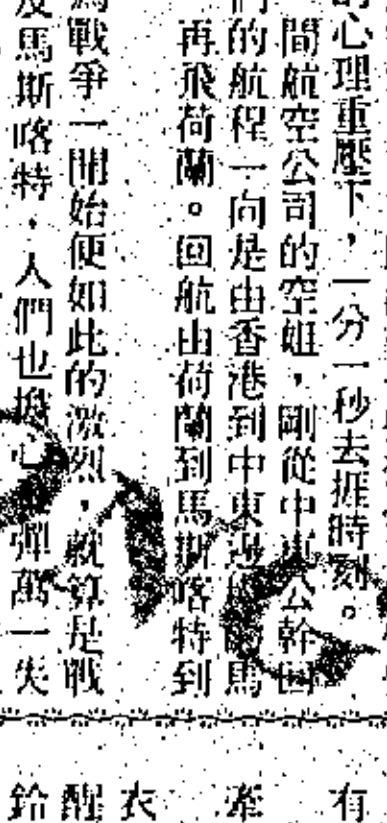 的心理重壓下，一分一秒去捱時刻。
間航空公司的空姐，剛從中東公幹回
們的航程一向是由香港到中東
馬
再飛荷蘭。回航由荷蘭到馬斯喀特到
為戰爭一開始便如此的激烈，就算是戰
及馬斯喀特，人們也擔心
彈萬一失
有
牽
衣
醒
鈴